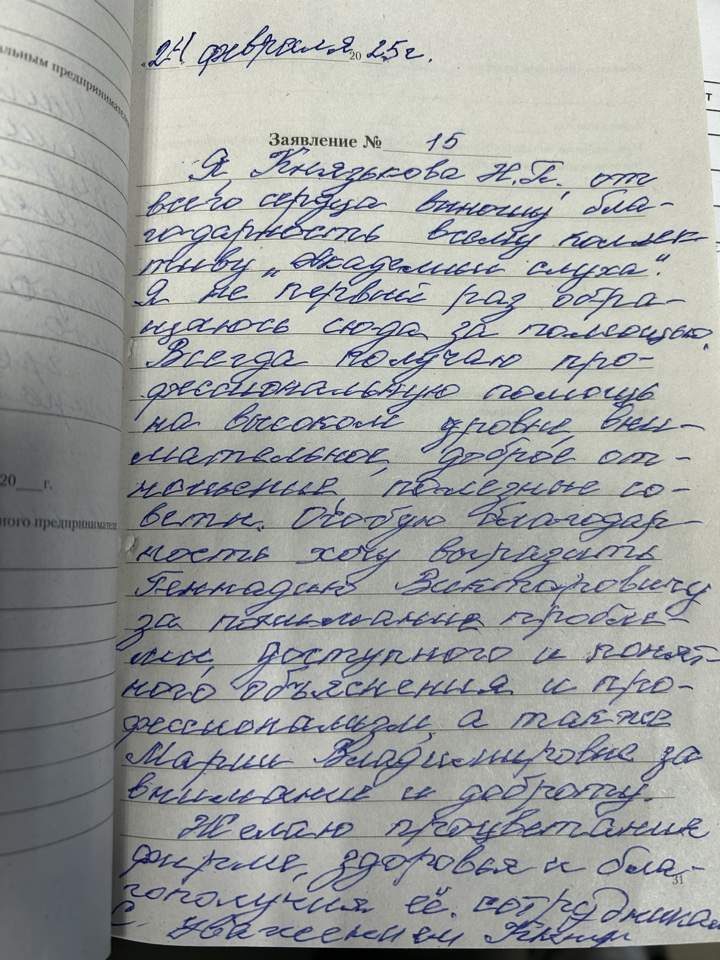 альным предпринимателем
20___г.
ного предпринимателя
24 февраля 2025г.
Заявление № 15
Я Князькова Н.П. от
всего сердца выношу бла-
годарность всему коллек-
тиву „Академии слуха".
Я не первый раз обра-
щаюсь сюда за помощью.
Всегда получаю про-
фессиональную помощь
на высоком уровне, вни-
мательное, доброе от-
ношение, полезные со-
веты. Особую благодар-
ность хочу выразить
Геннадию Викторовичу
за понимание пробле-
мы, доступного и понят-
ного объяснения и про-
фессионализм, а также
Марии Владимировне за
внимание и доброту.
Желаю процветания
фирме, здоровья и бла-
гополучия её сотрудникам
С уважением
31
т